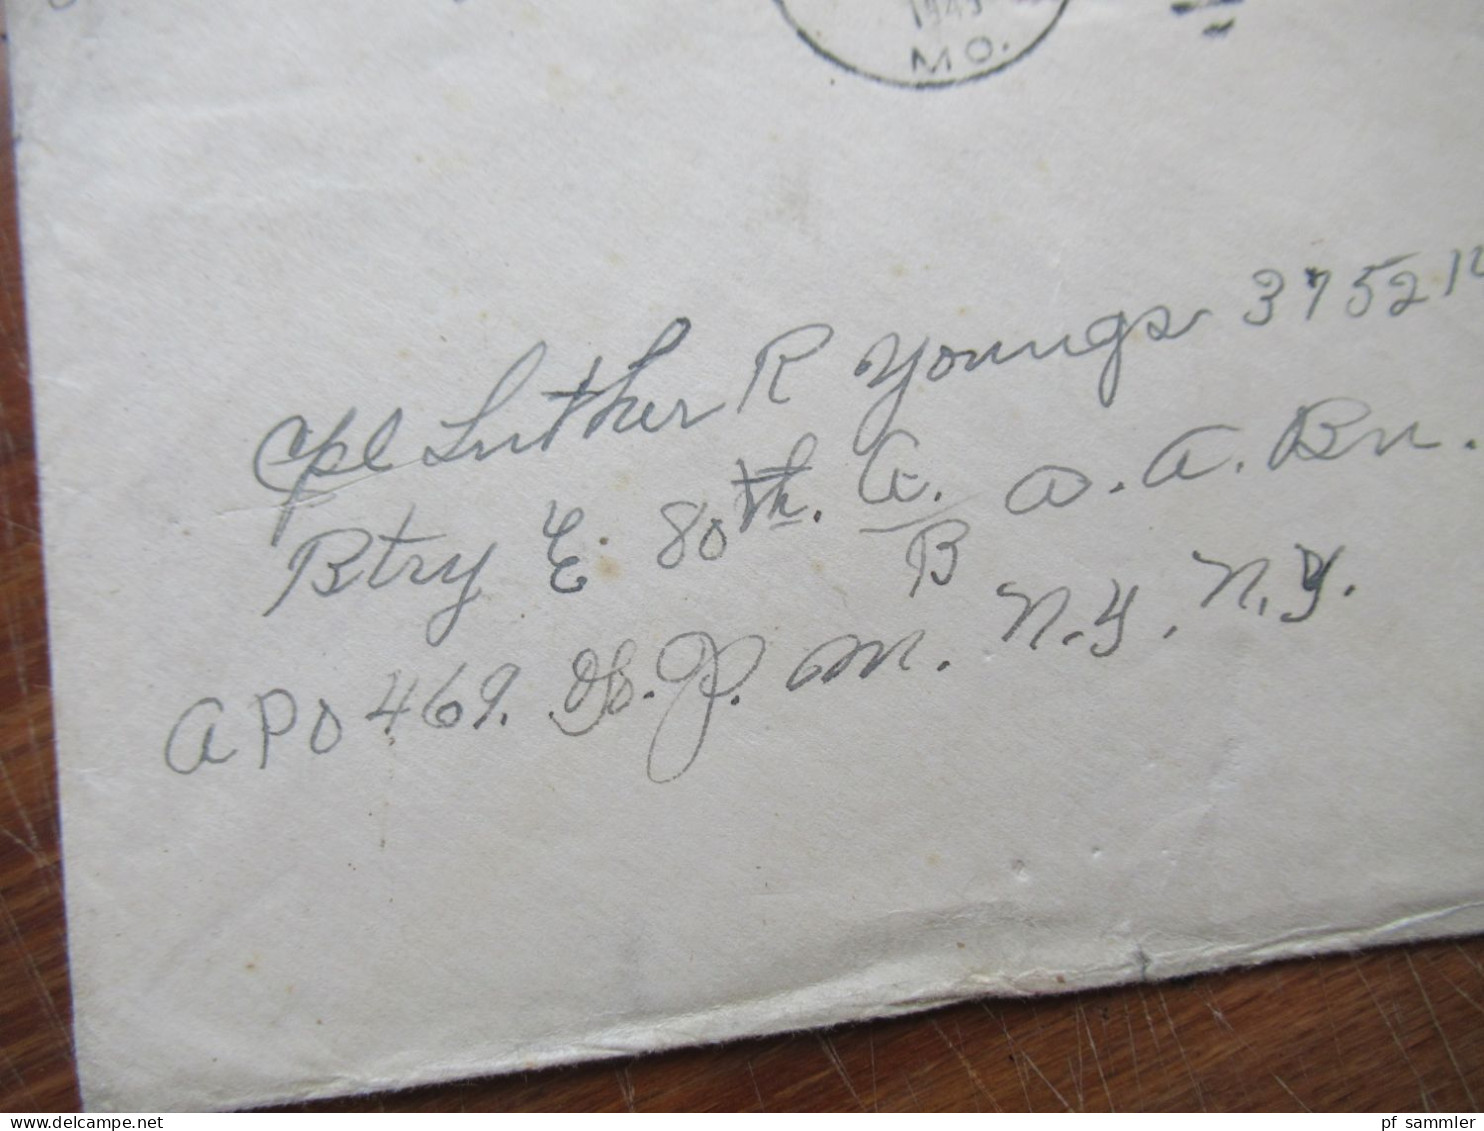 1945
MO.
Cpl Luther R Youngs 375212
Btry E. 80th. A. A. A. Bn.
B
APO 469. % P. M. N.Y. N.Y.
pf_sammler